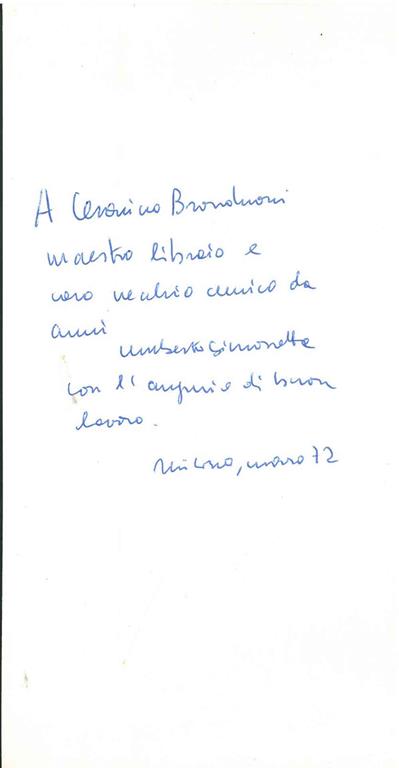 A Cesarino Branduani
maestro libraio e
caro vecchio amico da
anni
Umberto Simonetta
con l'augurio di buon
lavoro.
Milano, marzo 72